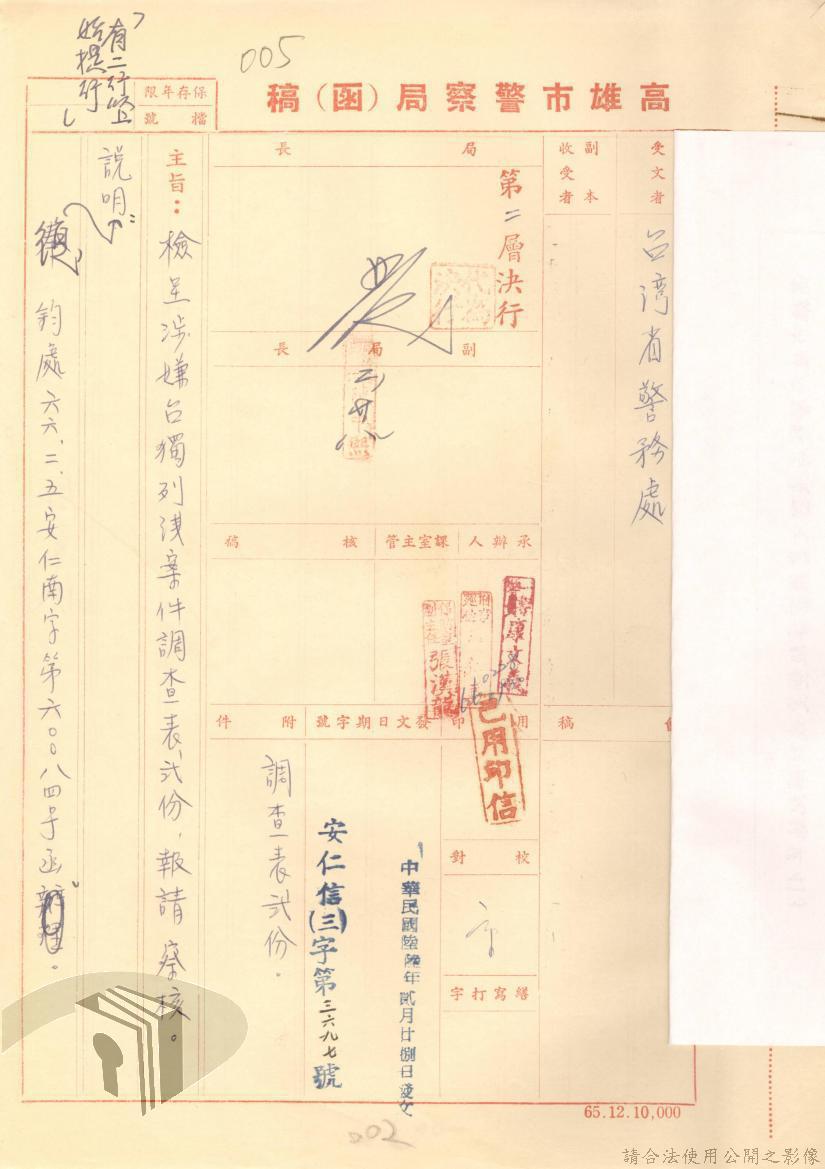 005
高雄市警察局（函）稿
保存年限
檔號
有二行以上
始提行
受文者
台湾省警務處
副本
收受者
局長
第二層決行
副局長
承辦人
課室主管
核稿
張漢龍
已用印信
用印
發文日期字號
附件
會稿
中華民國陸陸年貳月廿捌日發文
安仁信(三)字第三六九七號
調查表弍份。
校對
繕寫打字
主旨：檢呈涉嫌台獨列淺案件調查表弍份，報請　察核。
說明：
鈞處六六、二、五安仁南字第六〇〇八四号函辦理。
65.12.10,000
002
請合法使用公開之影像